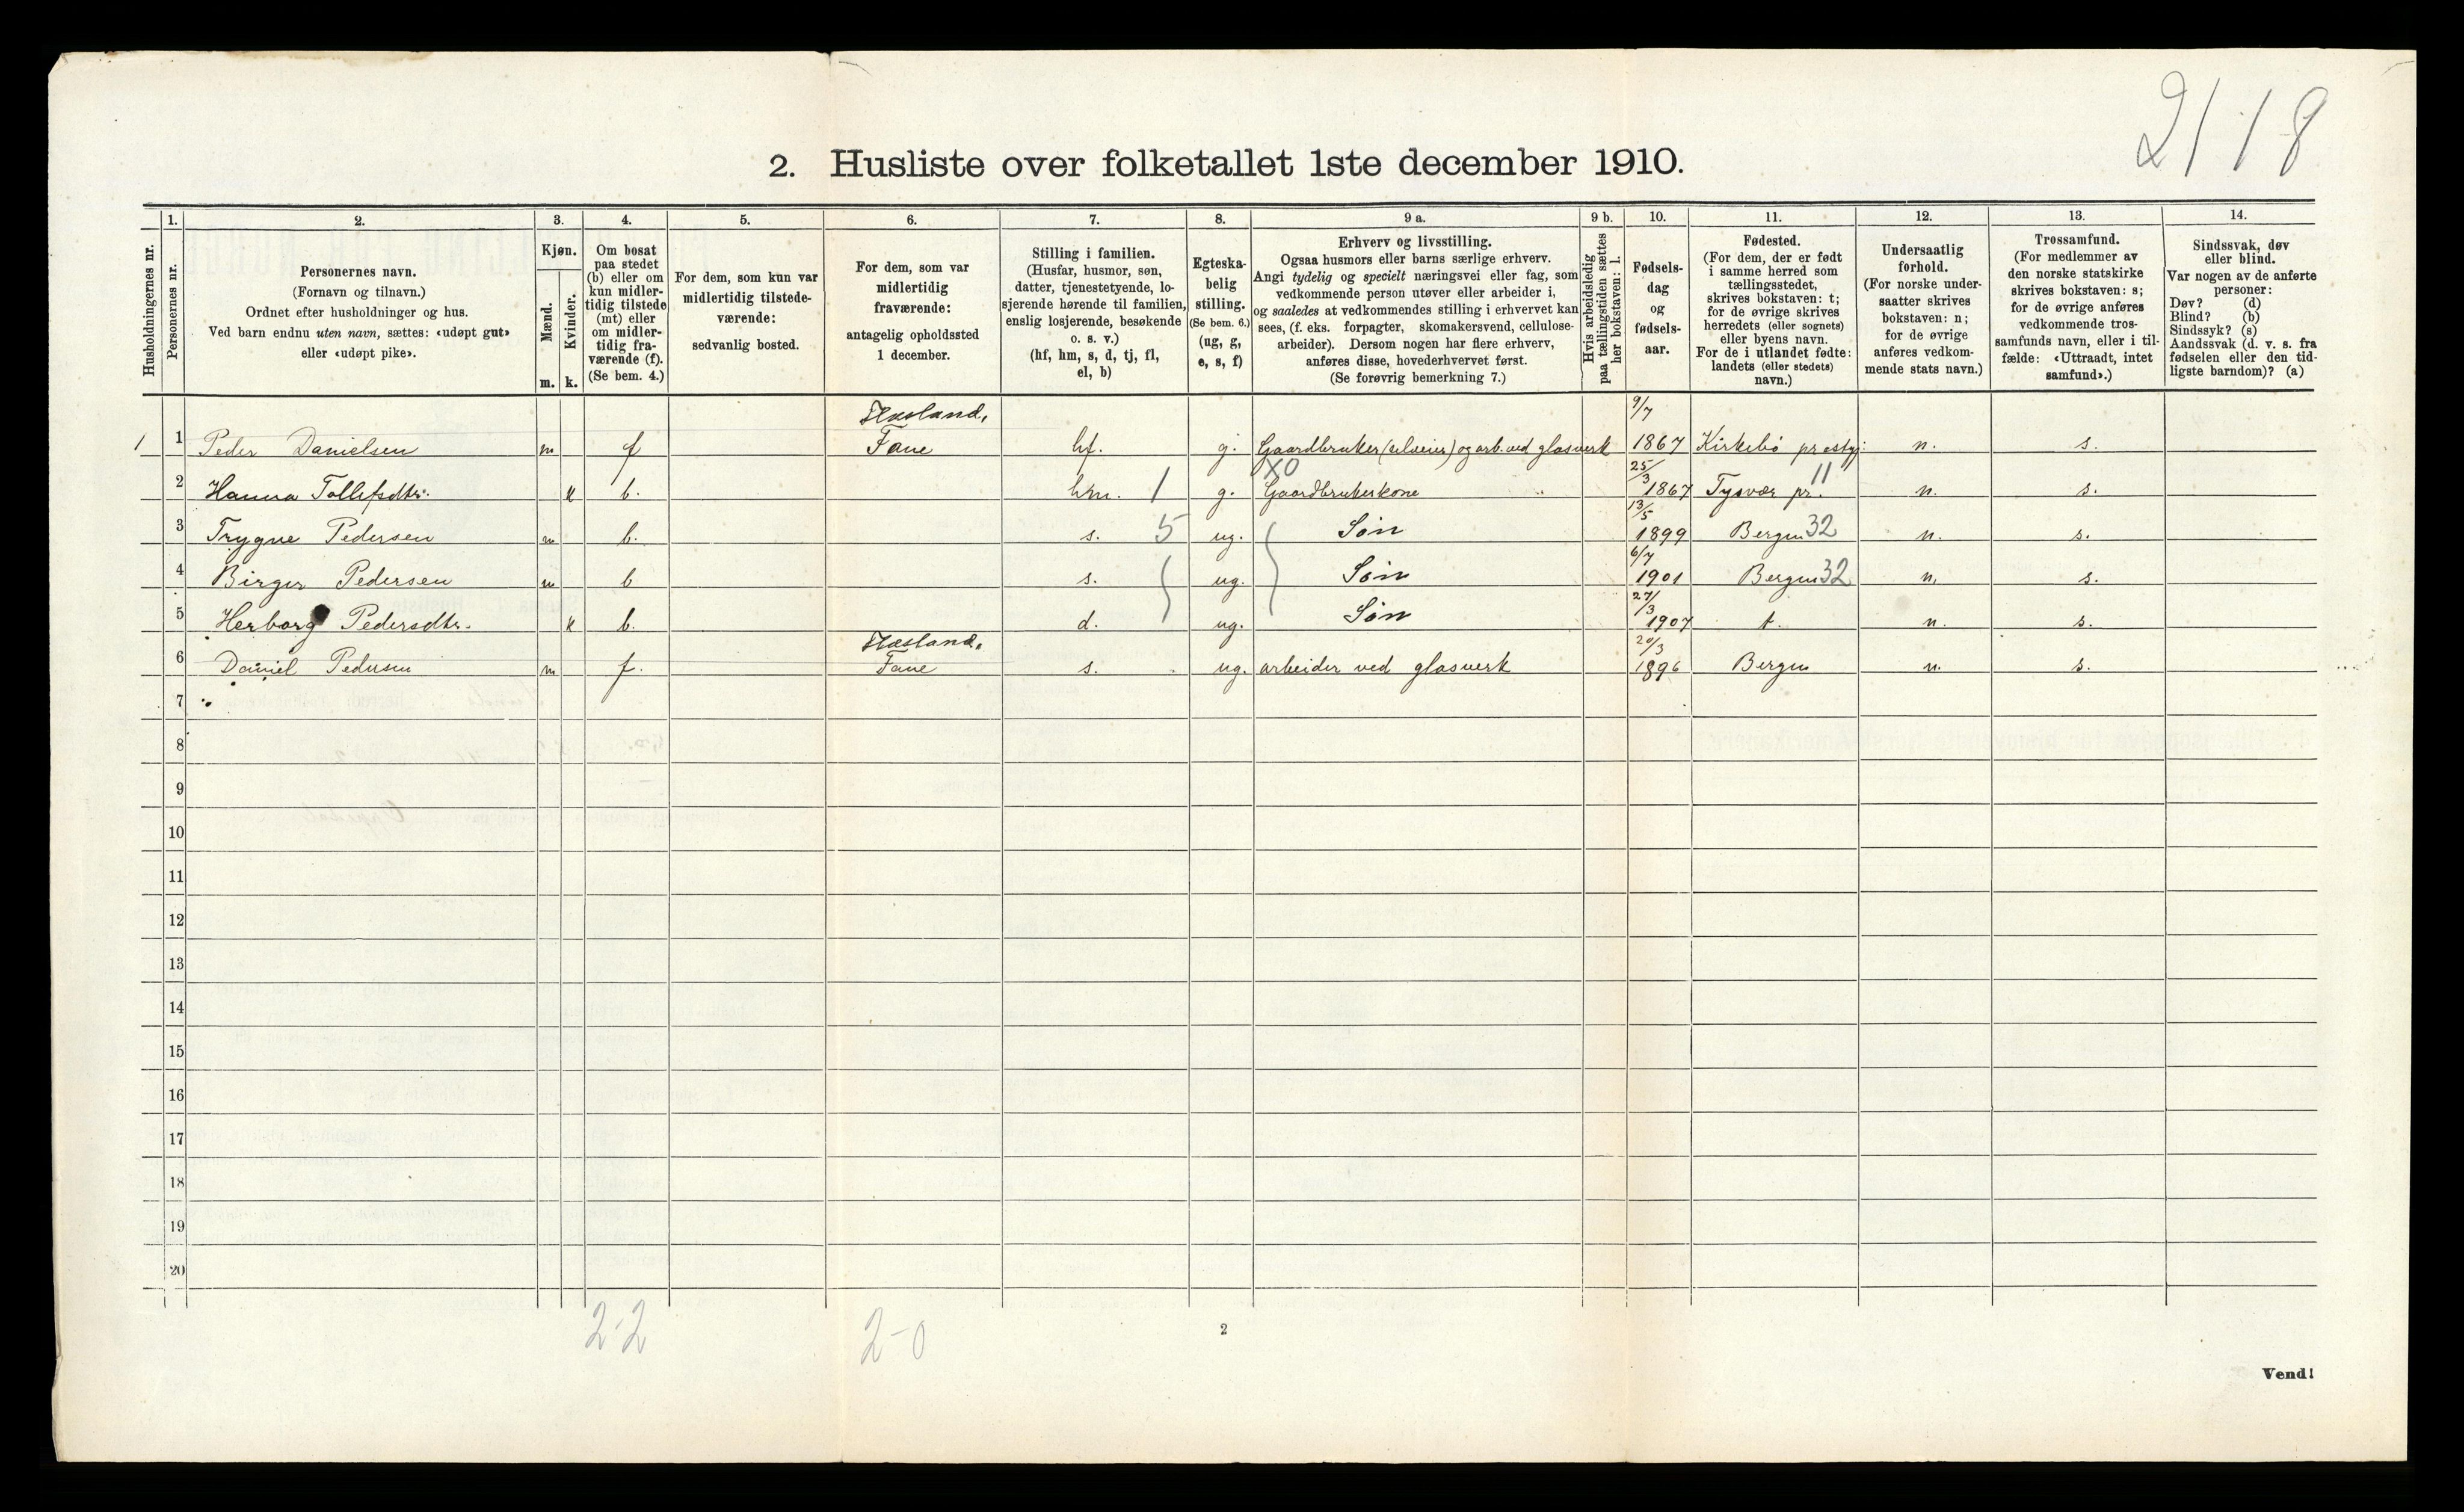 2118
2. Husliste over folketallet 1ste december 1910.
Husholdningernes nr.
1.
Personernes nr.
2.
Personernes navn.
(Fornavn og tilnavn.)
Ordnet efter husholdninger og hus.
Ved barn endnu uten navn, sættes: «udøpt gut»
eller «udøpt pike».
3.
Kjøn.
Mænd.
m.
Kvinder.
k.
4.
Om bosat
paa stedet
(b) eller om
kun midler-
tidig tilstede
(mt) eller
om midler-
tidig fra-
værende (f).
(Se bem. 4.)
5.
For dem, som kun var
midlertidig tilstede-
værende:
sedvanlig bosted.
6.
For dem, som var
midlertidig
fraværende:
antagelig opholdssted
1 december.
7.
Stilling i familien.
(Husfar, husmor, søn,
datter, tjenestetyende, lo-
sjerende hørende til familien,
enslig losjerende, besøkende
o. s. v.)
(hf, hm, s, d, tj, fl,
el, b)
8.
Egteska-
belig
stilling.
(Se bem. 6.)
(ug, g,
e, s, f)
9 a.
Erhverv og livsstilling.
Ogsaa husmors eller barns særlige erhverv.
Angi tydelig og specielt næringsvei eller fag, som
vedkommende person utøver eller arbeider i,
og saaledes at vedkommendes stilling i erhvervet kan
sees, (f. eks. forpagter, skomakersvend, cellulose-
arbeider). Dersom nogen har flere erhverv,
anføres disse, hovederhvervet først.
(Se forøvrig bemerkning 7.)
9 b.
Hvis arbeidsledig
paa tællingstiden sættes
her bokstaven: l.
10.
Fødsels-
dag
og
fødsels-
aar.
11.
Fødested.
(For dem, der er født
i samme herred som
tællingsstedet,
skrives bokstaven: t;
for de øvrige skrives
herredets (eller sognets)
eller byens navn.
For de i utlandet fødte:
landets (eller stedets)
navn.)
12.
Undersaatlig
forhold.
(For norske under-
saatter skrives
bokstaven: n;
for de øvrige
anføres vedkom-
mende stats navn.)
13.
Trossamfund.
(For medlemmer av
den norske statskirke
skrives bokstaven: s;
for de øvrige anføres
vedkommende tros-
samfunds navn, eller i til-
fælde: «Uttraadt, intet
samfund».)
14.
Sindssvak, døv
eller blind.
Var nogen av de anførte
personer:
Døv? (d)
Blind? (b)
Sindssyk? (s)
Aandssvak (d. v. s. fra
fødselen eller den tid-
ligste barndom)? (a)
1 1 Peder Danielsen m f Fane hf. g. Gaardbruker (selveier) og arb. ved glasverk 9/7 1867 Kirkebö prestgj: n. s.
2 Hanna Tollefsdtr. k b. hm. 1 g. X0 Gaardbrukerkone " 25/3 1867 Tysvær pr. 11 n. s.
3 Trygve Pedersen m b. s. 5 ug. Søn 13/5 1899 Bergen 32 n. s.
4 Birger Pedersen m b s. ug. Søn 6/7 1901 Bergen 32 n. s.
5 Herborg Pedersdtr. k b. d. ug. Søn 27/3 1907 t. n. s.
6 Daniel Pedersen m f. Fane s. ug. arbeider ved glasverk 20/3 1896 Bergen n. s.
7
8
9
10
11
12
13
14
15
16
17
18
19
20
2-2
2-0
2
Vend!